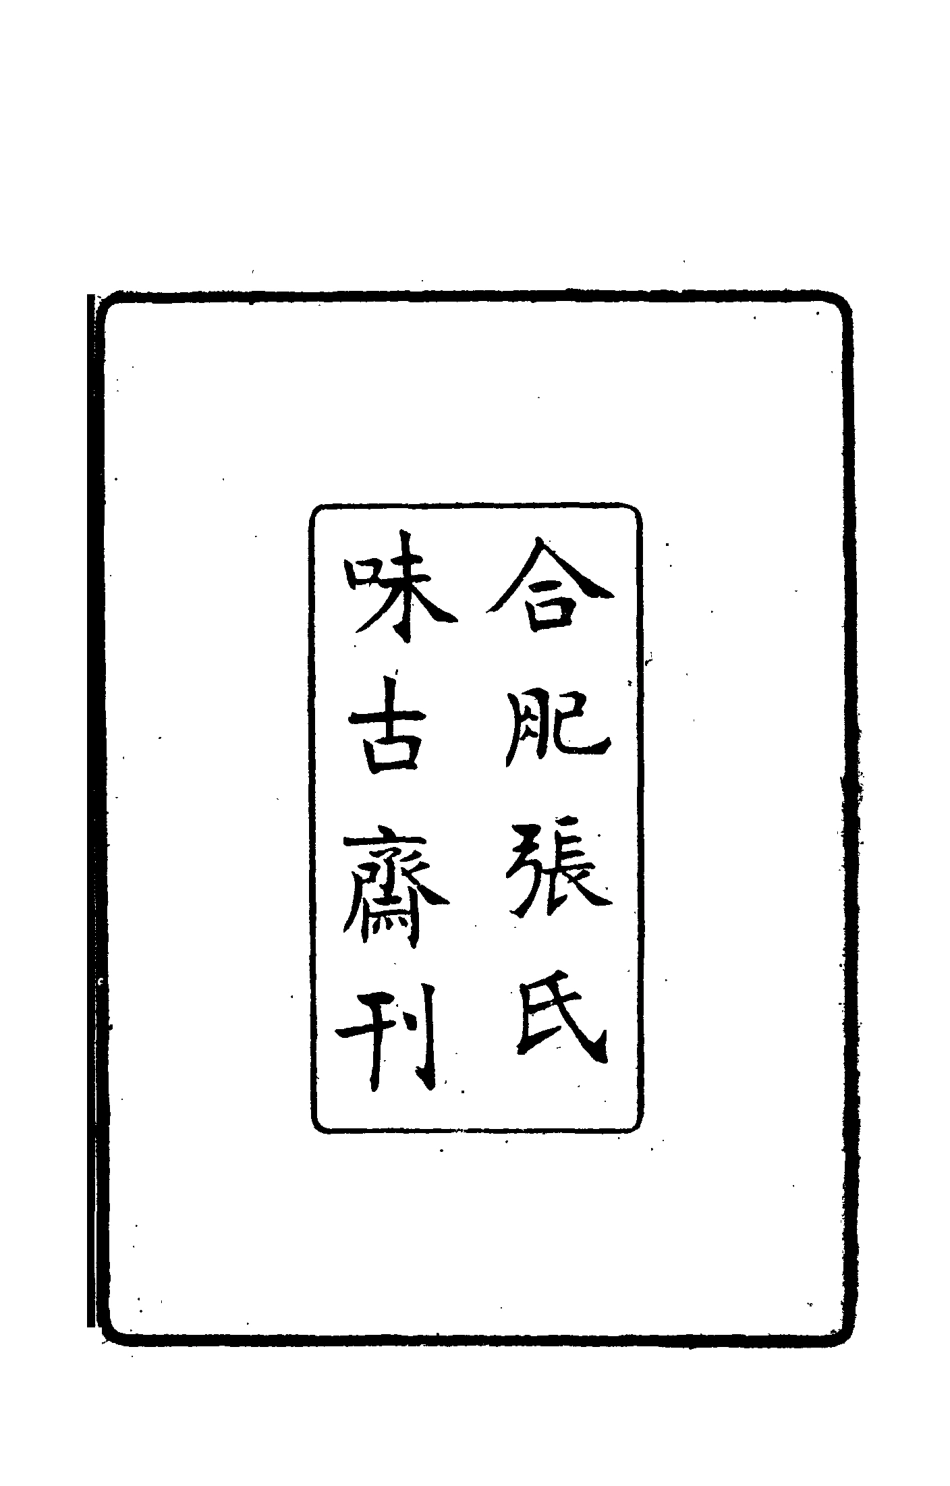 合肥張氏
味古齋刊